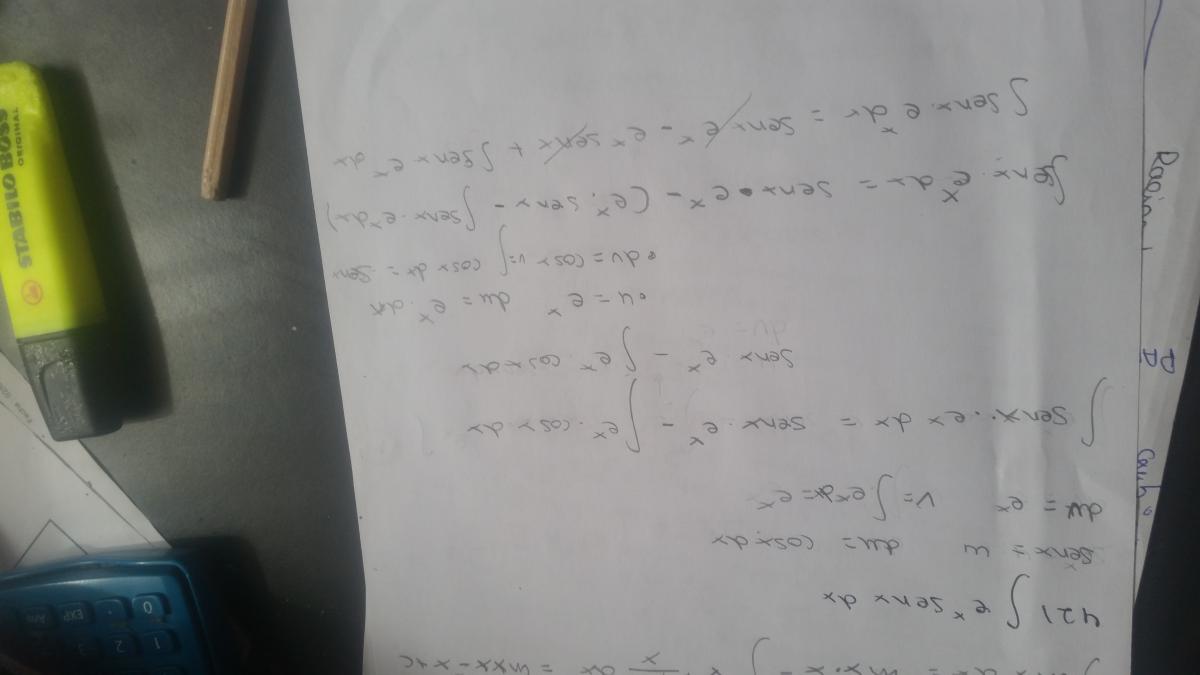 = lnx·x - ∫ x · 1/x dx = lnx x - x + c
421 ∫ e^x senx dx
senx = u du = cosx·dx
du = e^x v = ∫ e^x dx = e^x
∫ senx · e^x dx = senx · e^x - ∫ e^x · cosx dx
senx · e^x - ∫ e^x cosx dx
• u = e^x du = e^x · dx
• du = cosx v = ∫ cosx dx = senx
∫ senx · e^x dx = senx • e^x - (e^x · senx - ∫ senx · e^x dx)
∫ senx · e^x dx = senx e^x - e^x senx + ∫ senx e^x dx
STABILO BOSS
ORIGINAL
0 · EXP Ans
1 2 3